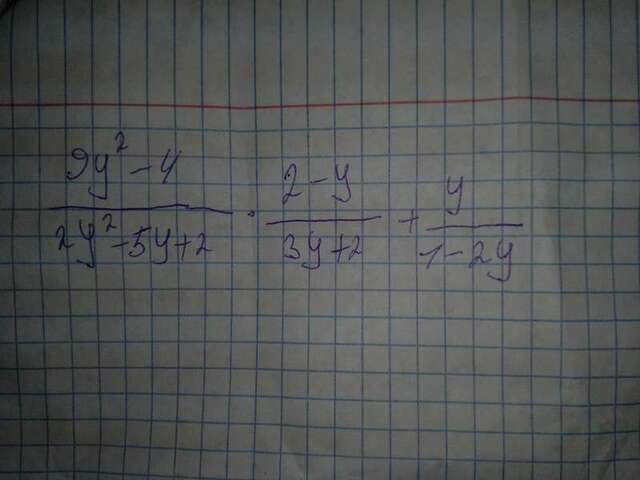 9y² - 4 / 2y² - 5y + 2 · 2 - y / 3y + 2 + y / 1 - 2y